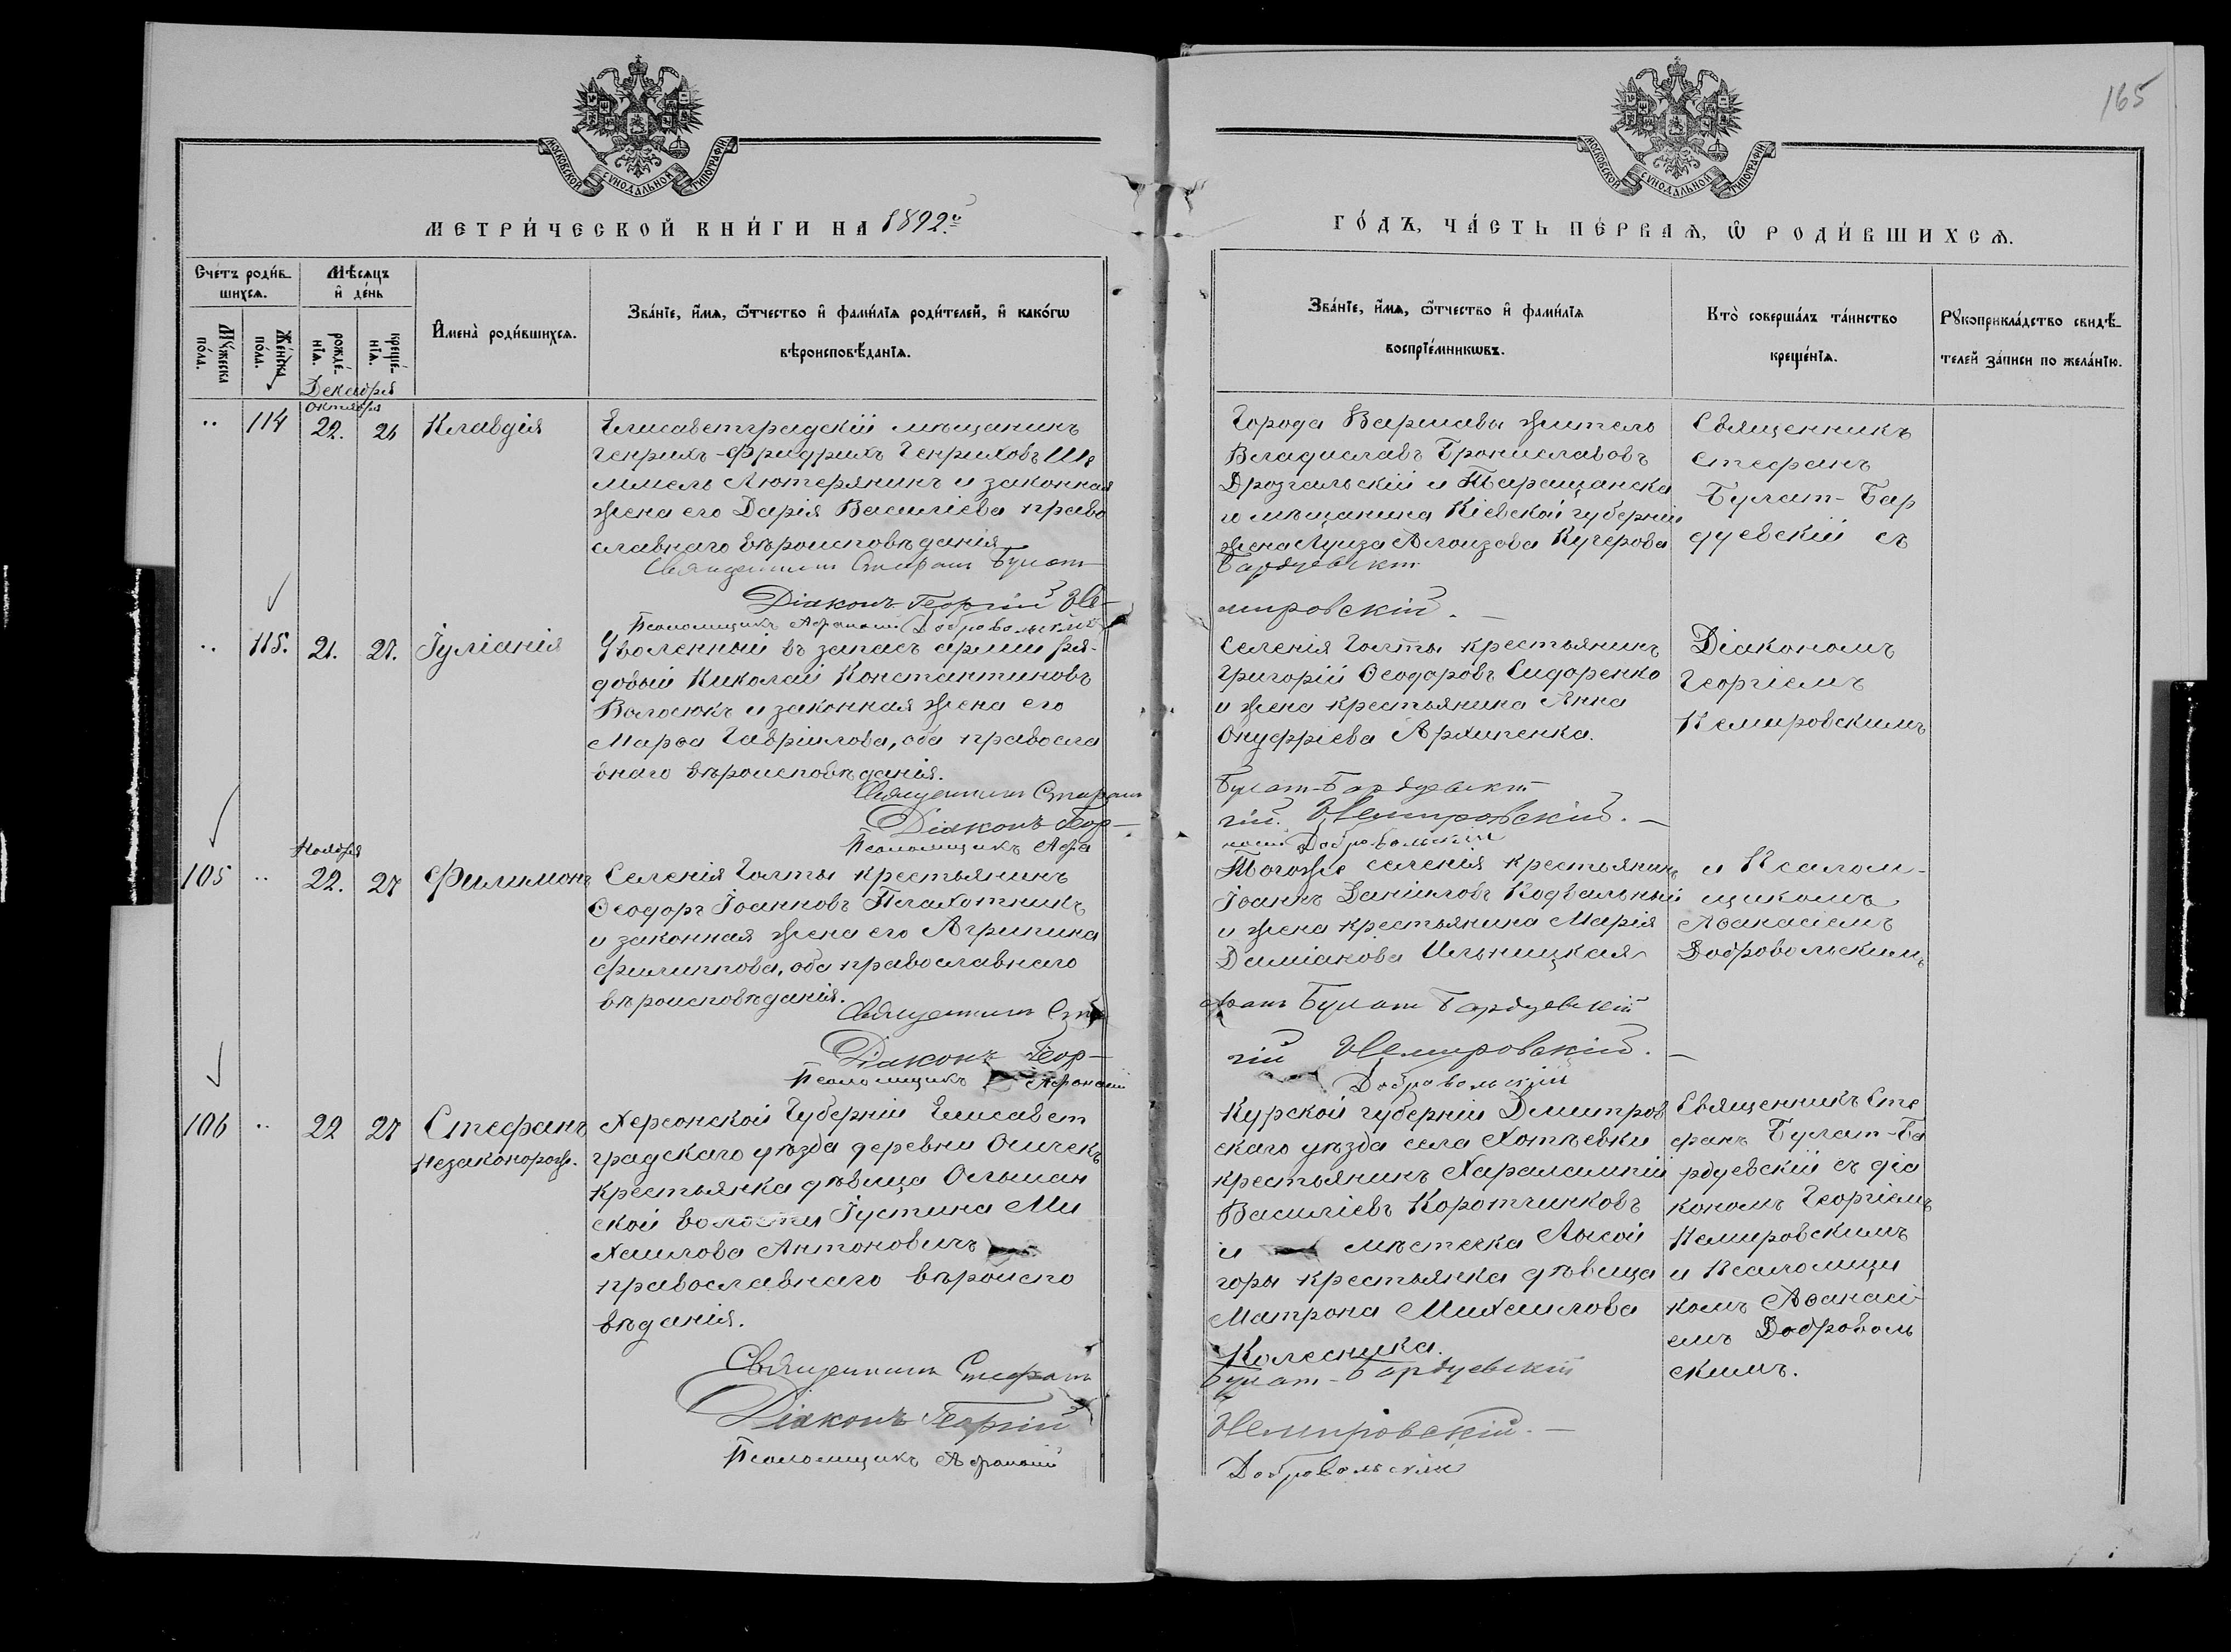 165
МОСКОВСКОЙ СѴНОДАЛЬНОЙ ТИПОГРАФІИ
МОСКОВСКОЙ СѴНОДАЛЬНОЙ ТИПОГРАФІИ
МЕТРИ́ЧЕСКОЙ КНИ́ГИ НА 1892.й
ГО́ДЪ, ЧА́СТЬ ПЕ́РВАѦ, Ѽ РОДИ́ВШИХСѦ.
Счетъ роди́в-
шихсѧ.
Мꙋ́жеска
по́ла.
Же́нска
по́ла.
Мѣ́сѧцъ
и҆ де́нь
рожде́-
нїѧ.
креще́-
нїѧ.
И҆мена̀ роди́вшихсѧ.
Зва́нїе, и҆́мѧ, ѻ҆́тчество и҆ фами́лїѧ роди́телей, и҆ како́гѡ
вѣроисповѣ́данїѧ.
Зва́нїе, и҆́мѧ, ѻ҆́тчество и҆ фами́лїѧ
воспрїе́мникѡвъ.
Кто̀ соверша́лъ та́инство
креще́нїѧ.
Рꙋкоприкла́дство свидѣ́-
телей за́писи по жела́нїю.
Декабря
Октября
.. 114 22. 26 Клавдія
Елисаветградскій мѣщанинъ
Генрихъ-Фридрихъ Генриховъ Ше
ммель Лютерянинъ и законная
жена его Дарія Василіева право
славнаго вѣроисповѣданія
Священникъ Стефанъ Булат
Діаконъ Георгій Не-
Псаломщикъ Афанасій Добровольскій
Города Варшавы житель
Владиславъ Брониславовъ
Дрозгальскій и Таращанска
го мѣщанина Кіевской губерніи
жена Луиза Алоизова Кучерова
Бардуевскій
мировскій.
Священникъ
Стефанъ
Булат-Бар
дуевскій съ
.. 115. 21. 27. Іуліанія
Уволенный въ запасъ арміи ря-
довый Николай Константиновъ
Волосюкъ и законная жена его
Марѳа Гавріилова, оба правосла
внаго вѣроисповѣданія.
Священникъ Стефанъ
Діаконъ Геор-
Псаломщикъ Афа
Селенія Голты крестьянинъ
Григорій Ѳеодоровъ Сидоренко
и жена крестьянина Анна
Онуфріева Архипенка.
Булат-Бардуевскій
гій. Немировскій.
насій Добровольскій
Діакономъ
Георгіемъ
Немировскимъ
Ноября
105 .. 22. 27 Филимонъ
Селенія Голты крестьянинъ
Ѳеодоръ Іоанновъ Плахотникъ
и законная жена его Агрипина
Филиппова, оба православнаго
вѣроисповѣданія.
Священникъ Сте
Діаконъ Геор-
Псаломщикъ Афанасій
Тогоже селенія крестьянинъ
Іоаннъ Даніиловъ Кодѣльный
и жена крестьянина Марія
Даміанова Ильницкая
фанъ Булат Бардуевскій
гій Немировскій.
Добровольскій
и Псалом-
щикомъ
Аѳанасіемъ
Добровольскимъ
106 .. 22 27 Стефанъ
незаконорожд.
Херсонской Губерніи Елисавет
градскаго уѣзда деревни Осичекъ
крестьянка дѣвица Ольшан
ской волости Іустина Ми
хаилова Антоновичъ
православнаго вѣроиспо
вѣданія.
Священникъ Стефанъ
Діаконъ Георгій
Псаломщикъ Афанасій
Курской губерніи Дмитров
скаго уѣзда села Хотѣевки
крестьянинъ Харалампій
Василіевъ Коротчиковъ
и мѣстечка Лысой
горы крестьянка дѣвица
Матрона Михаилова
Колесника.
Булат-Бардуевскій
Немировскій.
Добровольскій
Священникъ Сте
фанъ Булат-Ба
рдуевскій съ діа
кономъ Георгіемъ
Немировскимъ
и Псаломщи
комъ Аѳанасі
емъ Доброволь
скимъ.